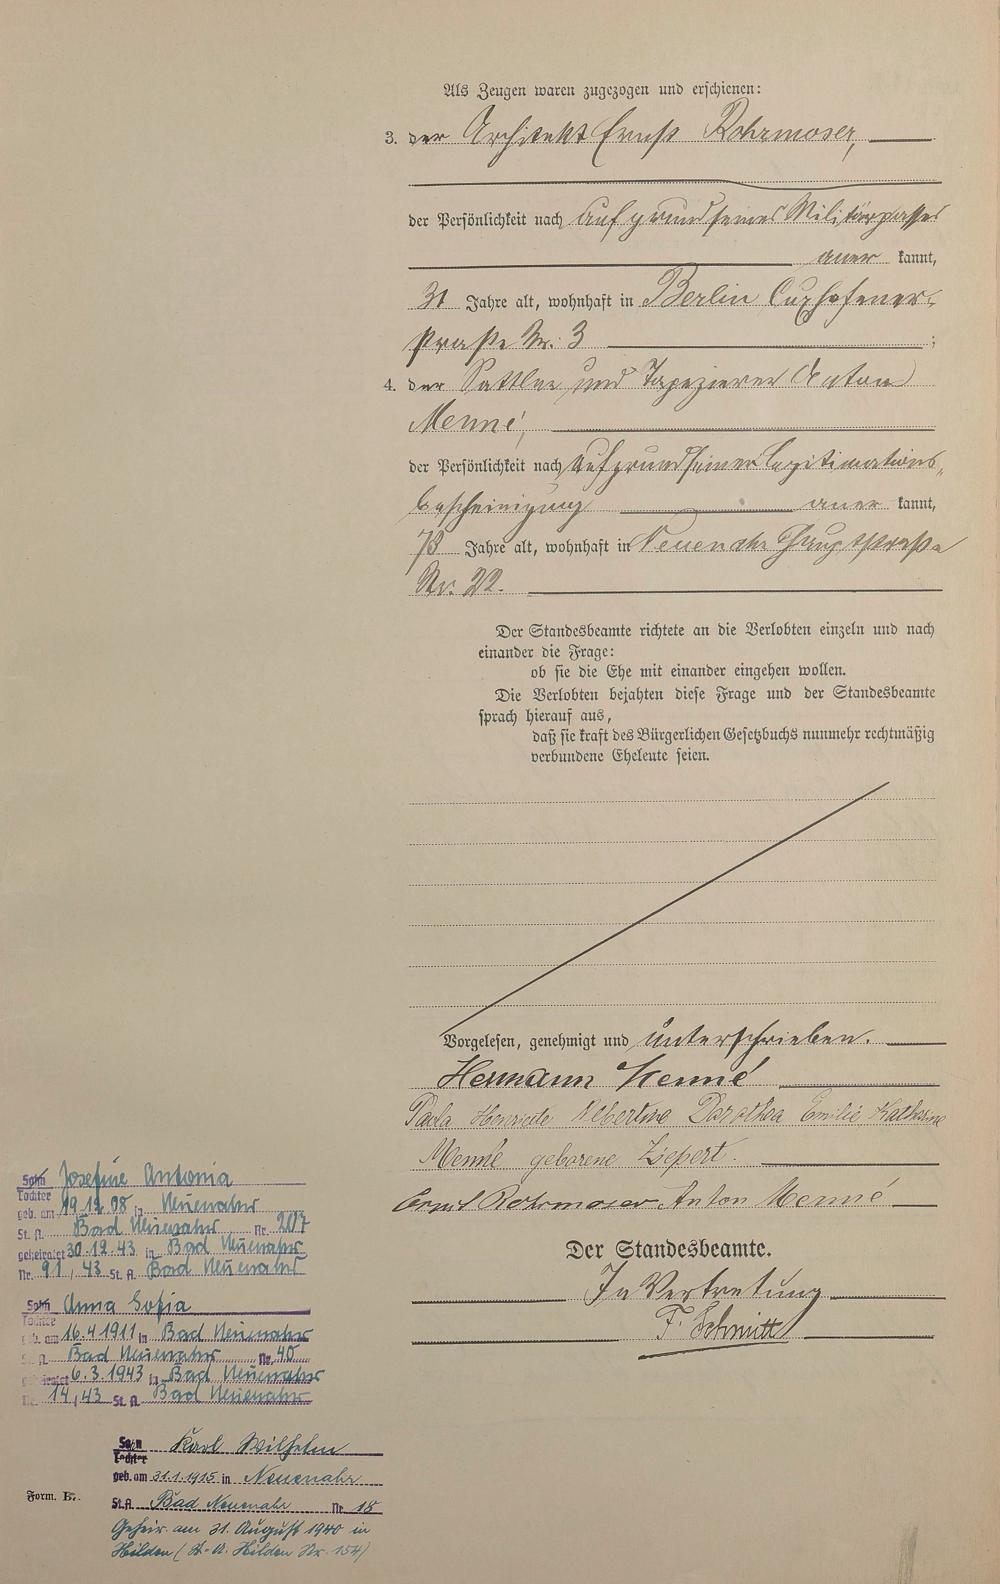 Als Zeugen waren zugezogen und erschienen:
3. der Architekt Ernst Rohrmoser,
der Persönlichkeit nach auf grund seines Militärpasses
aner kannt,
31 Jahre alt, wohnhaft in Berlin Cuxhafener-
straße Nr. 3 ;
4. der Sattler und Tapezierer Anton
Menné,
der Persönlichkeit nach auf grund seiner Legitimations-
bescheinigung aner kannt,
Jahre alt, wohnhaft in Neuenahr Hauptstraße
Nr. 22.
Der Standesbeamte richtete an die Verlobten einzeln und nach
einander die Frage:
ob sie die Ehe mit einander eingehen wollen.
Die Verlobten bejahten diese Frage und der Standesbeamte
sprach hierauf aus,
daß sie kraft des Bürgerlichen Gesetzbuchs nunmehr rechtmäßig
verbundene Eheleute seien.
Vorgelesen, genehmigt und unterschrieben.
Hermann Menné
Paula Henriete Albertine Dorothea Emilie Katharine
Menné geborene Ziepert.
Ernst Rohrmoser Anton Menné
Der Standesbeamte.
In Vertretung
F. Schmitt
Sohn Josefine Antonia
Tochter
geb. am 19.12.08 in Neuenahr
St. A. Bad Neuenahr Nr. 207
geheiratet 30.12.43 in Bad Neuenahr
Nr. 91/43 St. A. Bad Neuenahr
Sohn Anna Sofia
Tochter
geb. am 16.4.1911 in Bad Neuenahr
St. A. Bad Neuenahr Nr. 40
geheiratet 6.3.1943 in Bad Neuenahr
Nr. 14/43 St. A. Bad Neuenahr
Sohn Karl Wilhelm
Tochter
geb. am 31.1.1915 in Neuenahr
St. A. Bad Neuenahr Nr 18
Form. B.
Geheir. am 31. August 1940 in
Hilden (St.-A. Hilden Nr. 154)